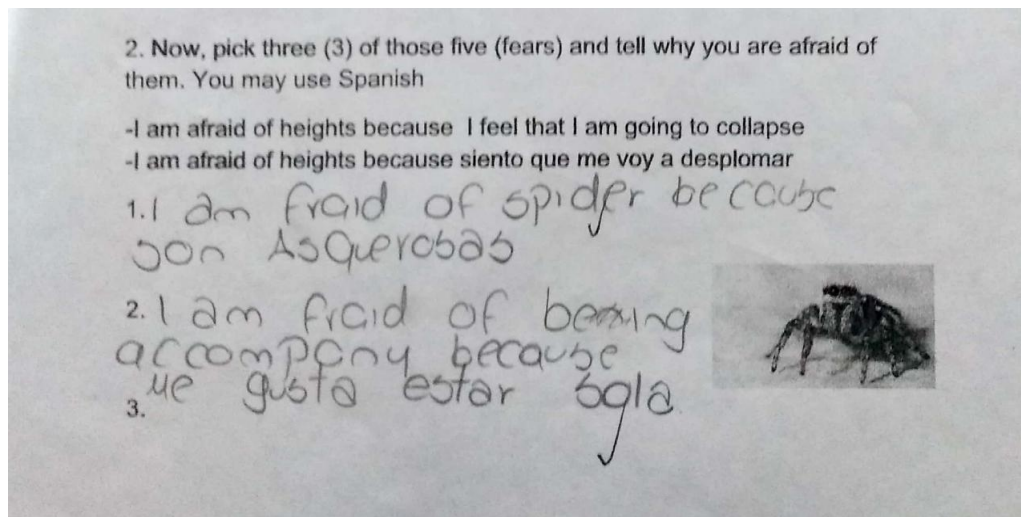 2. Now, pick three (3) of those five (fears) and tell why you are afraid of
them. You may use Spanish
-I am afraid of heights because I feel that I am going to collapse
-I am afraid of heights because siento que me voy a desplomar
1. I am fraid of spider because
son Asquerosas
2. I am fraid of being
accompany because
Me gusta estar sola
3.